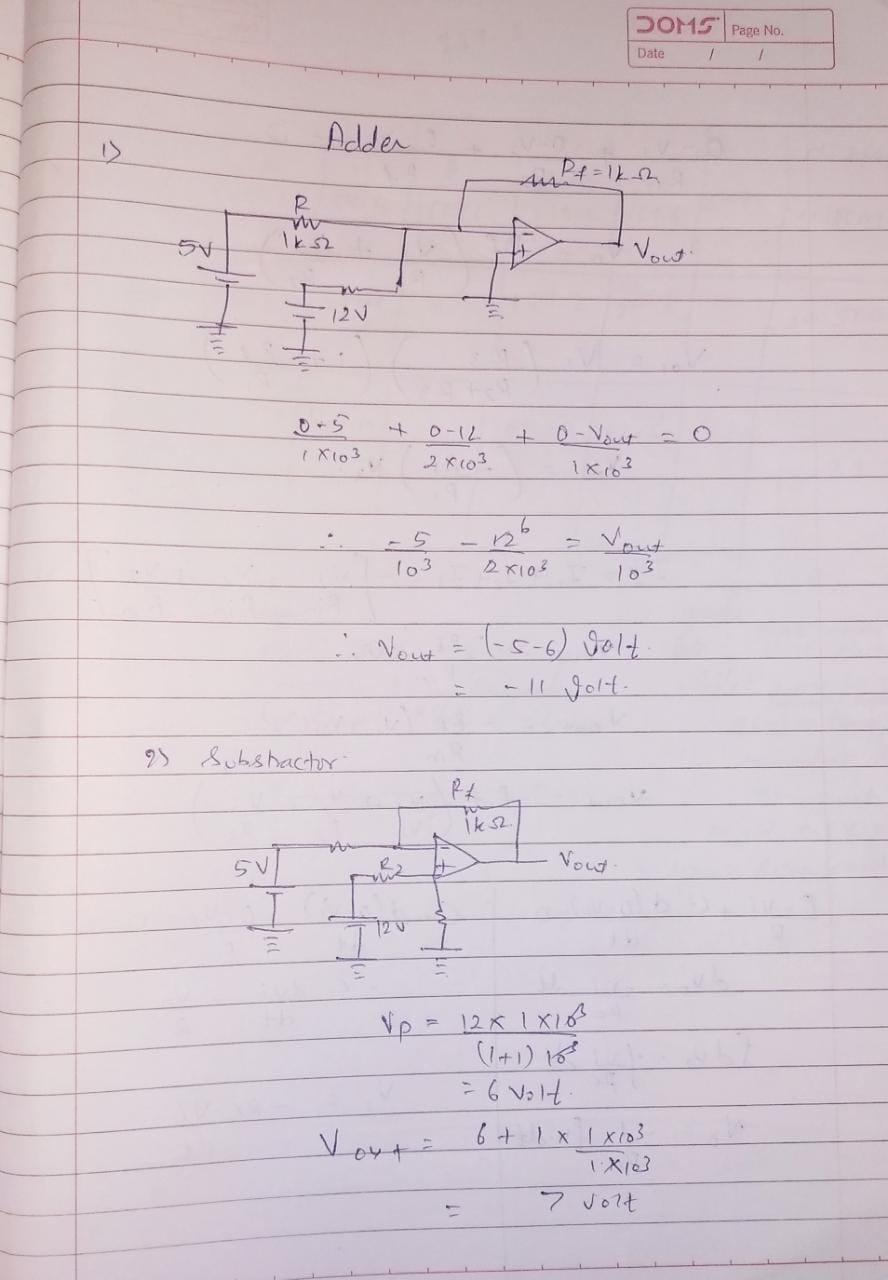 DOMS Page No.
Date / /
1) Adder
Rf = 1k Ω
R
1k Ω
5V
Vout.
12V
0+5/1×10³ + 0-12/2×10³ + 0-Vout/1×10³ = 0
∴ -5/10³ - 12⁶/2×10³ = Vout/10³
∴ Vout = (-5-6) Volt.
= -11 Volt.
2) Substractor
Rf
1k Ω.
5V
R2
Vout.
12V
Vp = 12 × 1 × 10³/(1+1) 10³
= 6 Volt.
Vout = 6 + 1 × 1×10³/1×10³
= 7 Volt